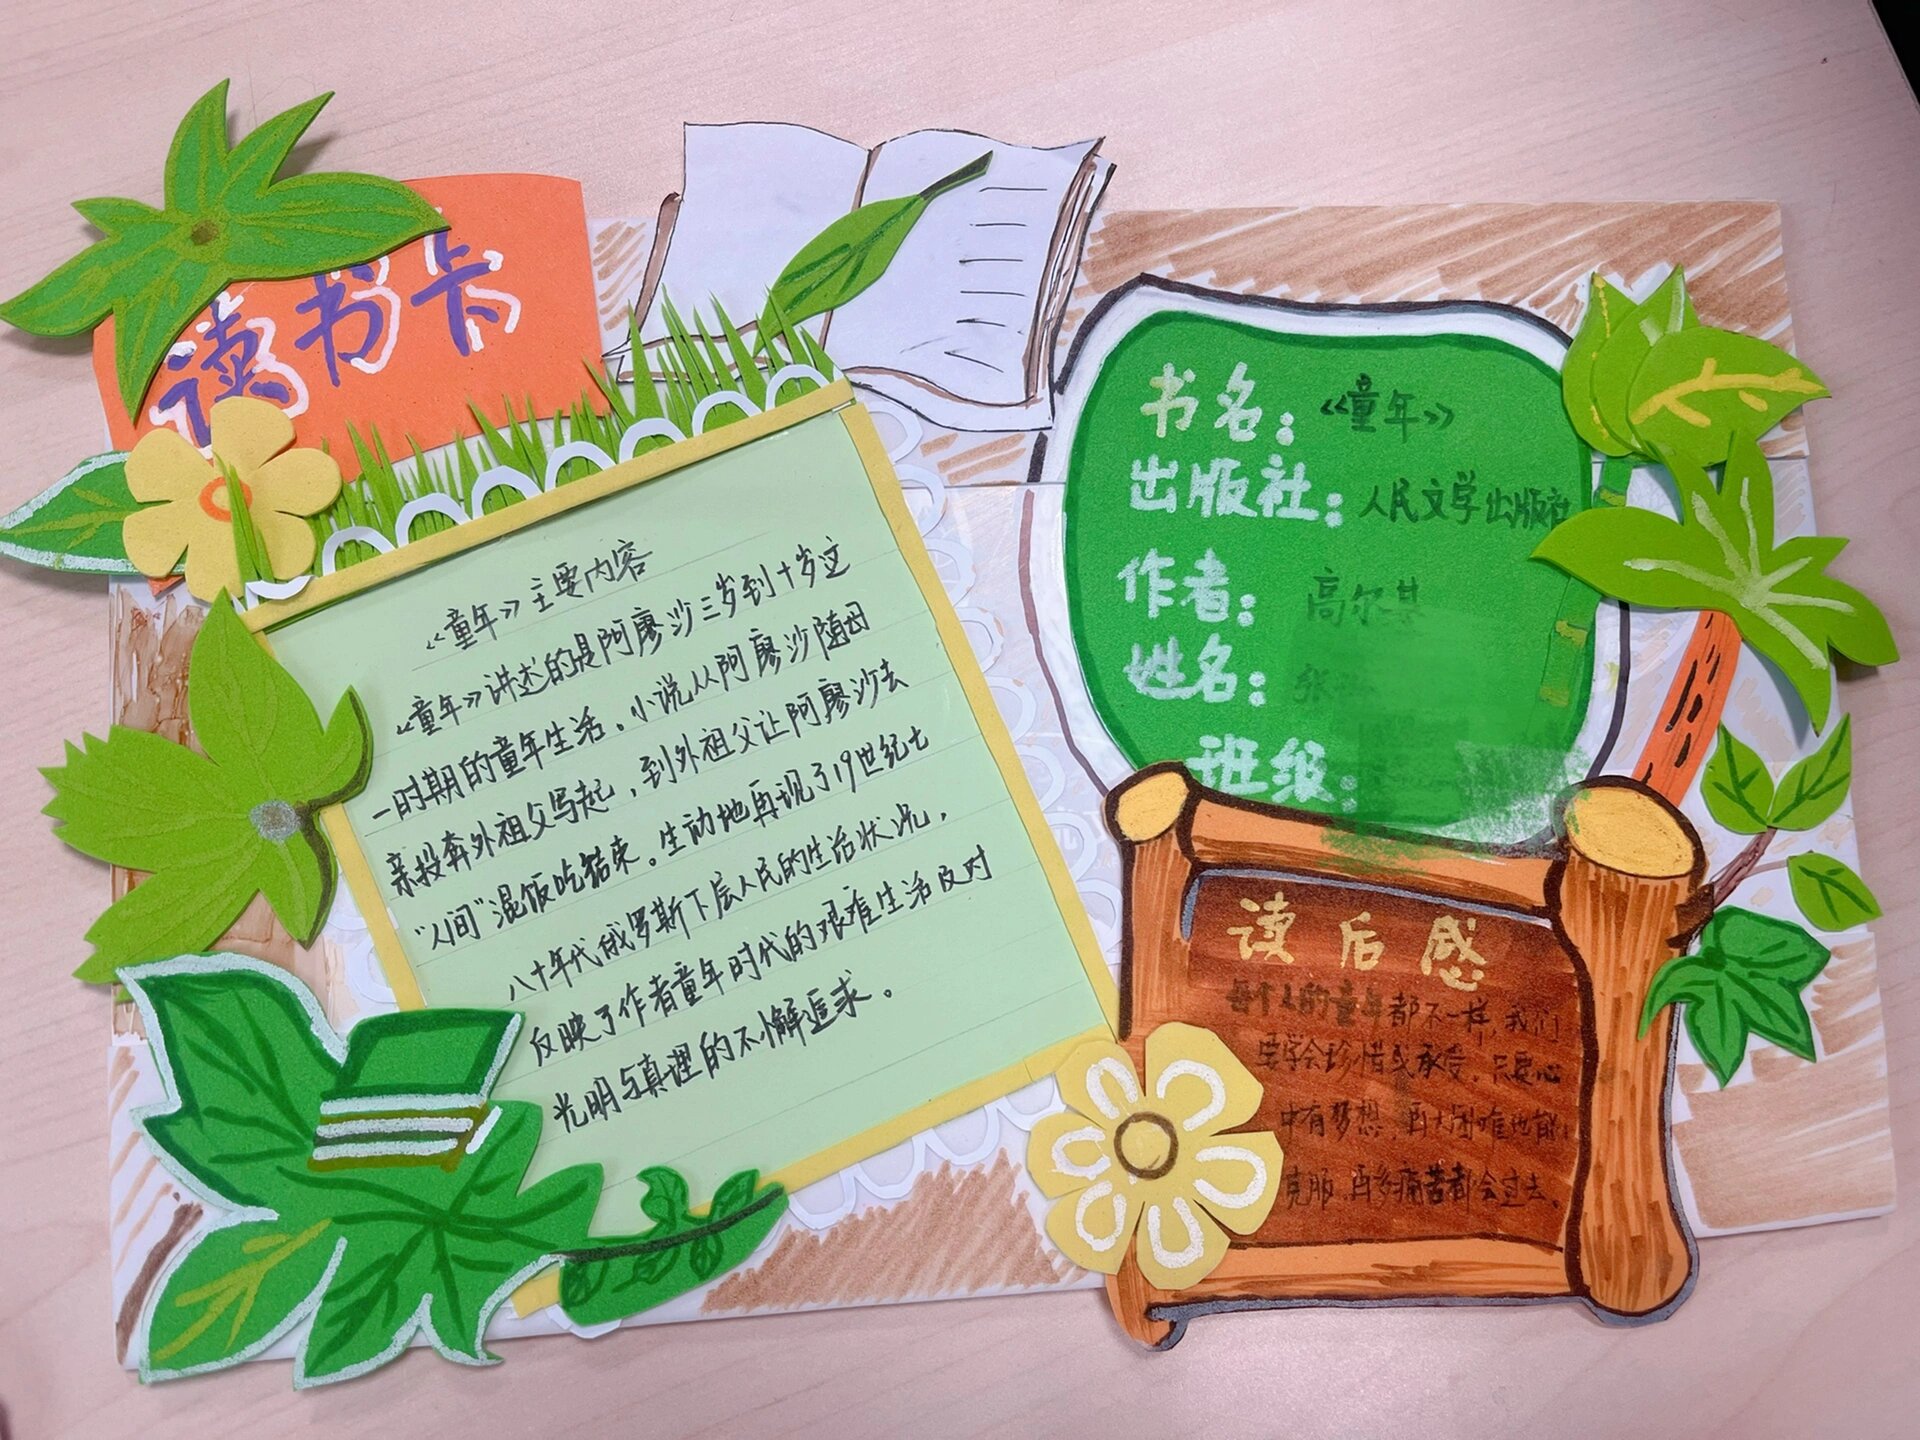 读书卡
《童年》主要内容
《童年》讲述的是阿廖沙三岁到十岁这
一时期的童年生活。小说从阿廖沙随母
亲投奔外祖父写起，到外祖父让阿廖沙去
“人间”混饭吃结束。生动地再现了19世纪七
八十年代俄罗斯下层人民的生活状况，
反映了作者童年时代的艰难生活及对
光明与真理的不懈追求。
书名：《童年》
出版社：人民文学出版社
作者：高尔基
姓名：张
班级：
读后感
每个人的童年都不一样，我们
要学会珍惜或承受，只要心
中有梦想，再大困难也能
克服，再多痛苦都会过去。